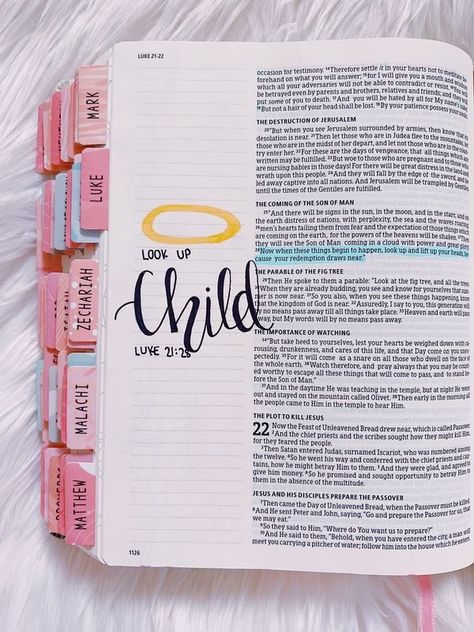 LUKE 21-22
MARK
LUKE
ZECHARIAH
MALACHI
MATTHEW
LOOK UP
Child
LUKE 21:28
occasion for testimony. 14Therefore settle it in your hearts not to meditate
forehand on what you will answer; 15for I will give you a mouth and
which all your adversaries will not be able to contradict or resist.
be betrayed even by parents and brothers, relatives and friends; and they
put some of you to death. 17And you will be hated by all for My name's
18But not a hair of your head shall be lost. 19By your patience possess your
THE DESTRUCTION OF JERUSALEM
20"But when you see Jerusalem surrounded by armies, then know that
desolation is near. 21Then let those who are in Judea flee to the mountains, let
those who are in the midst of her depart, and let not those who are in the
try enter her. 22For these are the days of vengeance, that all things which
written may be fulfilled. 23But woe to those who are pregnant and to those
are nursing babies in those days! For there will be great distress in the land
wrath upon this people. 24And they will fall by the edge of the sword, and be
led away captive into all nations. And Jerusalem will be trampled by Gentiles
until the times of the Gentiles are fulfilled.
THE COMING OF THE SON OF MAN
25"And there will be signs in the sun, in the moon, and in the stars; and on
the earth distress of nations, with perplexity, the sea and the waves roaring;
26men's hearts failing them from fear and the expectation of those things which
are coming on the earth, for the powers of the heavens will be shaken. 27Then
they will see the Son of Man coming in a cloud with power and great glory.
28Now when these things begin to happen, look up and lift up your heads, be-
cause your redemption draws near."
THE PARABLE OF THE FIG TREE
29Then He spoke to them a parable: "Look at the fig tree, and all the trees.
30When they are already budding, you see and know for yourselves that sum-
mer is now near. 31So you also, when you see these things happening, know
that the kingdom of God is near. 32Assuredly, I say to you, this generation will
by no means pass away till all things take place. 33Heaven and earth will pass
away, but My words will by no means pass away.
THE IMPORTANCE OF WATCHING
34"But take heed to yourselves, lest your hearts be weighed down with ca-
rousing, drunkenness, and cares of this life, and that Day come on you unex-
pectedly. 35For it will come as a snare on all those who dwell on the face of
the whole earth. 36Watch therefore, and pray always that you may be count-
ed worthy to escape all these things that will come to pass, and to stand be-
fore the Son of Man."
37And in the daytime He was teaching in the temple, but at night He went
out and stayed on the mountain called Olivet. 38Then early in the morning all
the people came to Him in the temple to hear Him.
THE PLOT TO KILL JESUS
22 Now the Feast of Unleavened Bread drew near, which is called Passover.
2And the chief priests and the scribes sought how they might kill Him,
for they feared the people.
3Then Satan entered Judas, surnamed Iscariot, who was numbered among
the twelve. 4So he went his way and conferred with the chief priests and cap-
tains, how he might betray Him to them. 5And they were glad, and agreed to
give him money. 6So he promised and sought opportunity to betray Him to
them in the absence of the multitude.
JESUS AND HIS DISCIPLES PREPARE THE PASSOVER
7Then came the Day of Unleavened Bread, when the Passover must be killed.
8And He sent Peter and John, saying, "Go and prepare the Passover for us, that
we may eat."
9So they said to Him, "Where do You want us to prepare?"
10And He said to them, "Behold, when you have entered the city, a man will
meet you carrying a pitcher of water; follow him into the house which he enters.
1126